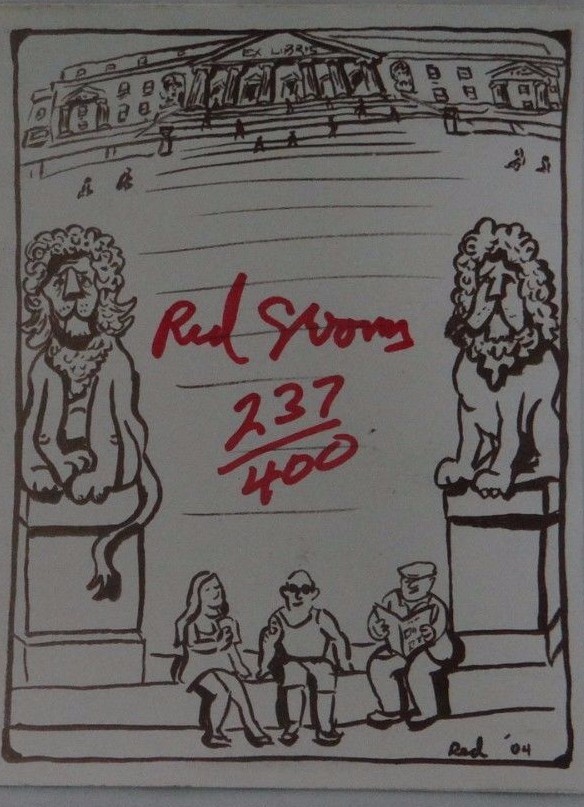 EX LIBRIS
Red Grooms
237
400
Red '04